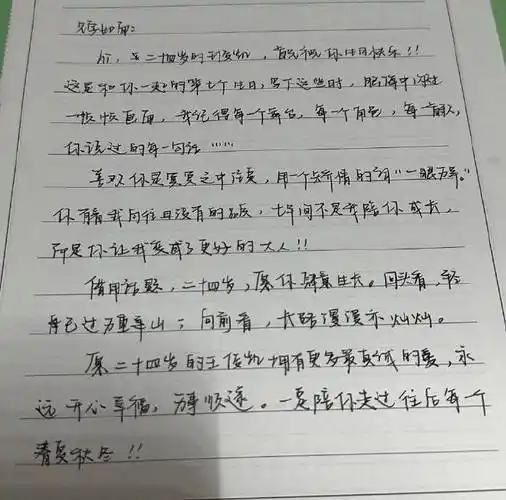 见字如面:
hi,至二十四岁的王俊凯,首先祝你生日快乐!!
这是和你一起的第七个生日,写下这些时,脑海中闪过
一帧帧画面,我记得每一个舞台,每一个角色,每一首歌,
你说过的每一句话……
喜欢你是冥冥之中注定,用一个矫情的词“一眼万年。”
你有着我向往且没有的品质,七年间不是我陪你成长,
而是你让我变成了更好的大人!!
借用话题,二十四岁,愿你肆意生长。回头看,轻
舟已过万重山;向前看,大路漫漫亦灿灿。
愿二十四岁的王俊凯拥有更多最真诚的爱,永
远开心幸福,万事顺遂。一定陪你走过往后每一个
春夏秋冬!!